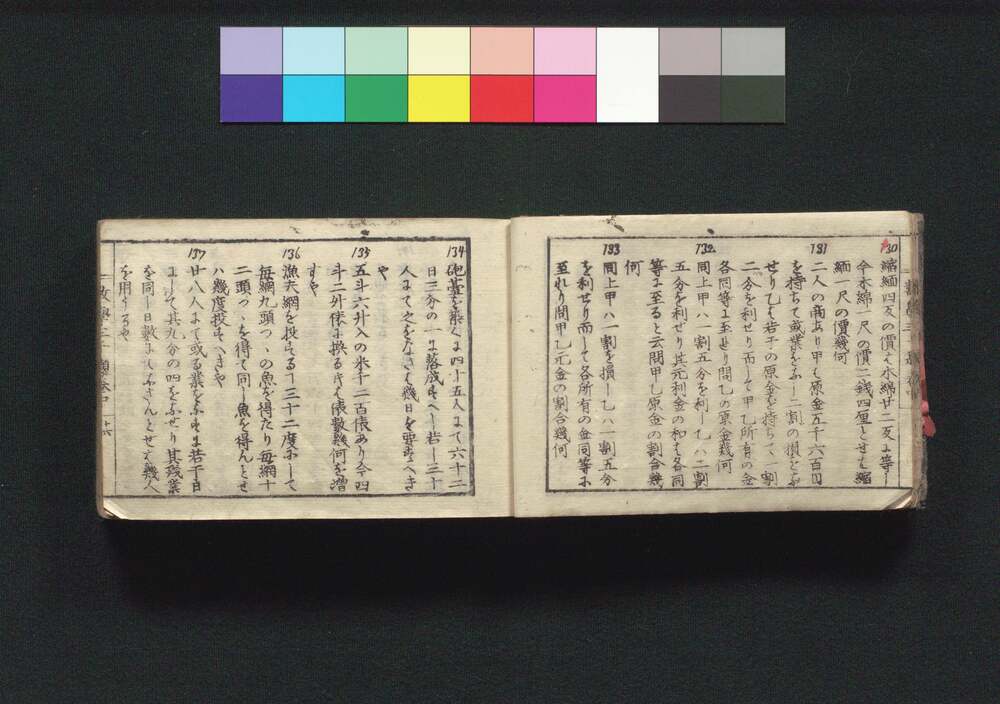 130
縮緬四反の價ハ木綿廿二反ニ等し
今木綿一尺の價二錢四厘とせバ縮
緬一尺の價幾何
131
二人の商あり甲ハ原金五千六百円
を持ちて或業をなし二割の損をな
せり乙ハ若干の原金を持ちて一割
二分を利せり而して甲乙所有の金
各同等ニ至せり問乙の原金幾何
132
同上甲ハ一割五分を利し乙ハ二割
五分を利せり其元利金の和ハ各同
等ニ至ると云問甲乙原金の割合幾
何
133
同上甲ハ一割を損し乙ハ一割五分
を利せり而して各所有の金同等ニ
至れり問甲乙元金の割合幾何
134
砲臺を築くに四十五人にて六十二
日三分の一に落成すべし若し三十
人にて之をなさバ幾日を要すべき
や
135
五斗六升入の米千二百俵あり今四
斗二升俵に換るときハ俵數幾何を増
すや
136
漁夫網を投ずるヿ三十二度にして
毎網九頭つゝの魚を得たり毎網十
二頭つゝを得て同し魚を得んとせ
ハ幾度投ずべきや
137
廿八人にて或る業をなすに若干日
にして其九分の四をなせり其殘業
を同し日數になさんとせバ幾人
を用うるや